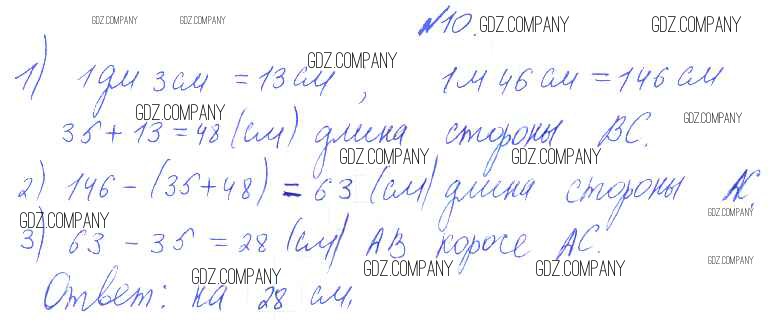 GDZ.COMPANY GDZ.COMPANY №10. GDZ.COMPANY GDZ.COMPANY
GDZ.COMPANY
1) 1дм 3см = 13см, 1м 46см = 146см
GDZ.COMPANY GDZ.COMPANY
35+13=48 (см) длина стороны ВС.
GDZ.COMPANY GDZ.COMPANY
2) 146-(35+48) = 63 (см) длина стороны АС.
GDZ.COMPANY GDZ.COMPANY
3) 63-35=28 (см) АВ короче АС.
GDZ.COMPANY GDZ.COMPANY GDZ.COMPANY GDZ.COMPANY
Ответ: на 28 см.